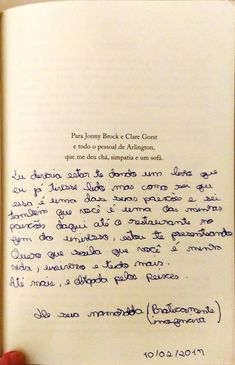 Para Jonny Brock e Clare Gorst
e todo o pessoal de Arlington,
que me deu chá, simpatia e um sofá.
Eu deveria estar te dando um livro que
eu já tivesse lido mas como sei que
essa é uma das suas paixões e sei
também que você é uma das minhas
paixões daqui até o restaurante no
fim do universo, estou te presenteando
Quero que saiba que você é minha
vida, universo e tudo mais.
Até mais, e obrigada pelos peixes.
De sua namorada (Praticamente
inofensiva)
10/02/2017